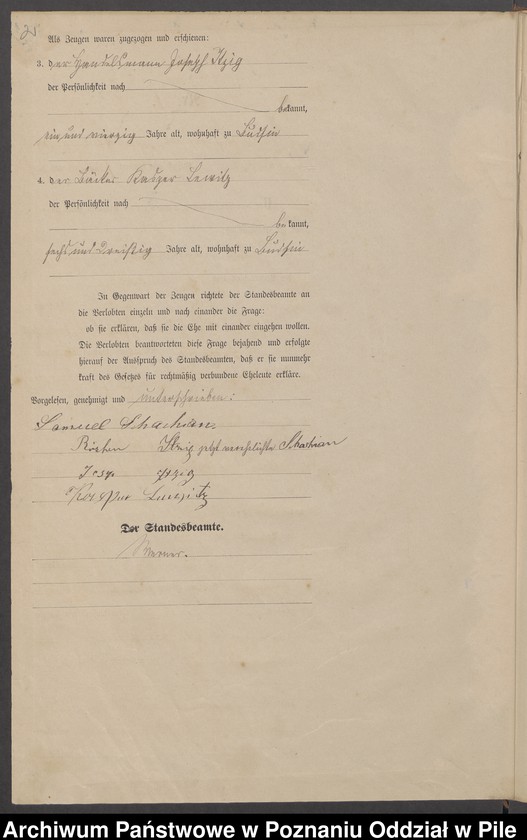 Als Zeugen waren zugezogen und erschienen:
3. der Handelsmann Joseph Itzig
der Persönlichkeit nach
bekannt,
ein und vierzig Jahre alt, wohnhaft zu Budsin
4. der Bäcker Kasper Lewitz
der Persönlichkeit nach
bekannt,
sechs und dreißig Jahre alt, wohnhaft zu Budsin
In Gegenwart der Zeugen richtete der Standesbeamte an
die Verlobten einzeln und nach einander die Frage:
ob sie erklären, daß sie die Ehe mit einander eingehen wollen.
Die Verlobten beantworteten diese Frage bejahend und erfolgte
hierauf der Ausspruch des Standesbeamten, daß er sie nunmehr
kraft des Gesetzes für rechtmäßig verbundene Eheleute erkläre.
Vorgelesen, genehmigt und unterschrieben:
Samuel
Itzig jetzt verehelichte
Itzig
Lewitz
Der Standesbeamte.
Werner.
Archiwum Państwowe w Poznaniu Oddział w Pile